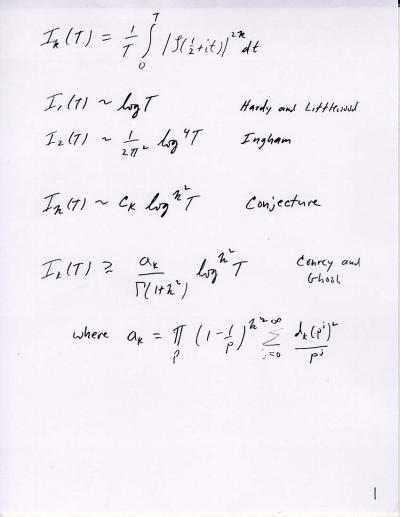 I_k(T) = 1/T ∫_0^T |ζ(1/2+it)|^{2k} dt
I_1(T) ~ log T Hardy and Littlewood
I_2(T) ~ 1/2π² log^4 T Ingham
I_k(T) ~ c_k log^{k²} T Conjecture
I_k(T) ≥ a_k/Γ(1+k²) log^{k²} T Conrey and
Ghosh
where a_k = ∏_p (1-1/p)^{k²} ∑_{j=0}^∞ d_k(p^j)²/p^j
1